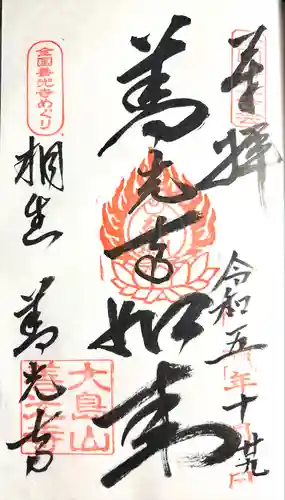 奉拝
令和五年十月廿九日
善光寺如来
全国善光寺めぐり
相生 善光寺
大島山
善光寺